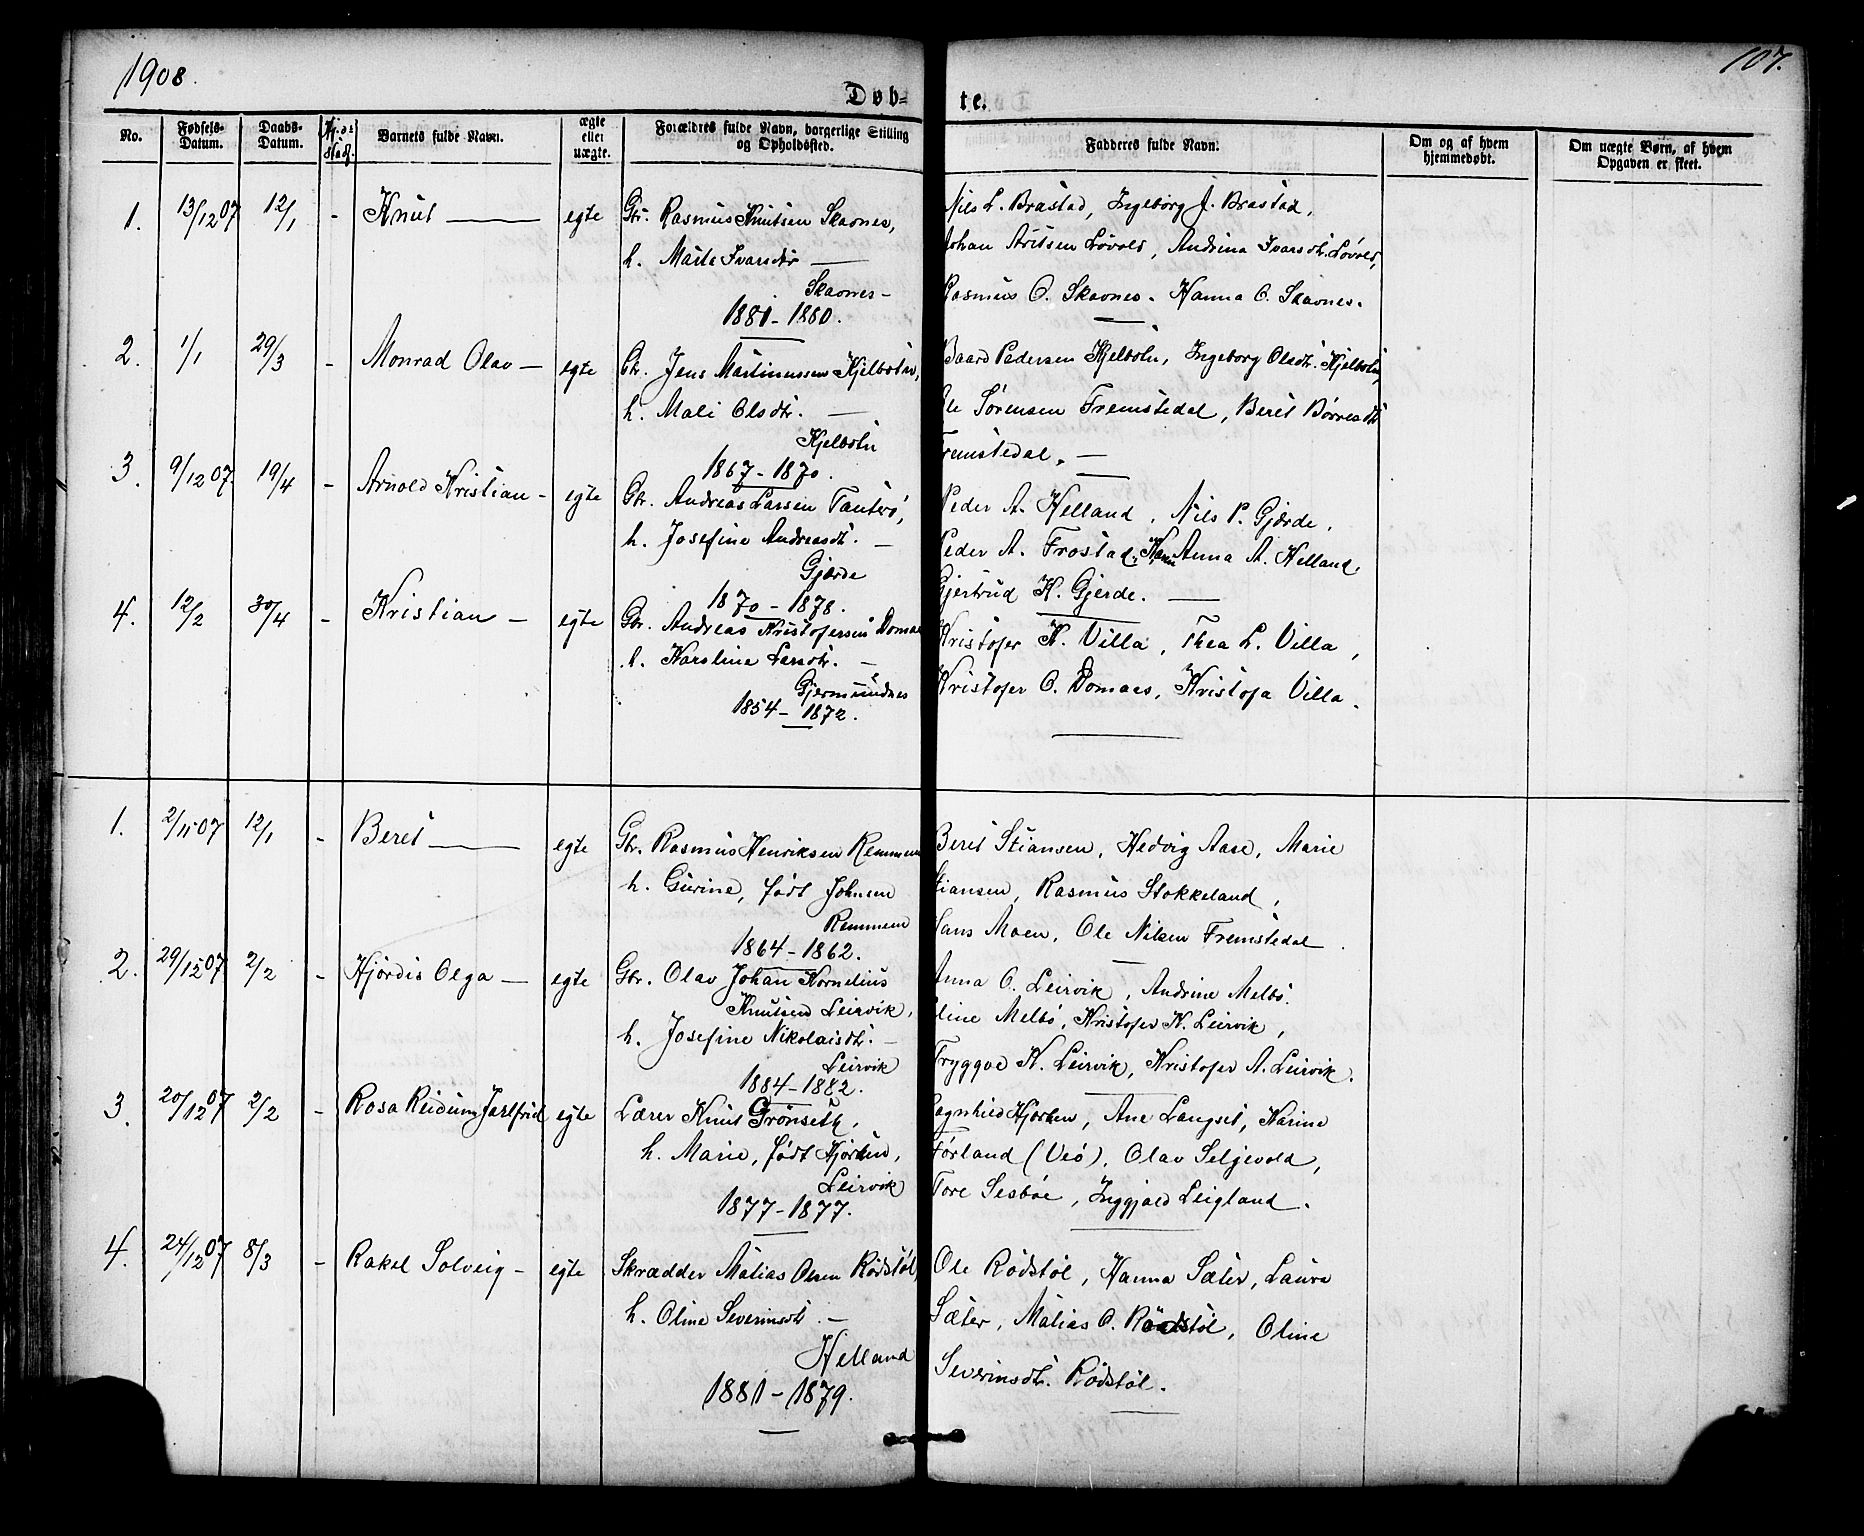 1908.
107.
Døb-
te.
No.
Fødsels-Datum.
Daabs-Datum.
Barnets fulde Navn.
ægte eller uægte.
Forældres fulde Navn, borgerlige Stilling og Opholdssted.
Fadderes fulde Navn.
Om og af hvem hjemmedøbt.
Om uægte Børn, af hvem Opgaven er skeet.
1. 13/12 07 12/1 - Knut — egte Gbr. Rasmus Knutsen Skaones,
h. Marte Ivarsdtr —
Skaones-
1881-1880.
Nils L. Brastad, Ingeborg J. Brastad,
Johan Løvold, Andrina Ivarsdtr. Løvold,
Rasmus O. Skaones. Hanna O. Skaones.
2. 1/1 29/3 - Monrad Olav — egte Gbr. Jens Martinussen Kjelbotn,
h. Mali Olsdtr. —
Kjelbotn
1867-1870.
Baard Pedersen Kjelbotn, Ingeborg Olsdtr. Kjelbotn,
Ole Sørensen Fremstedal, Beret
Fremstedal. —
3. 9/12 07. 19/4 - Arnold Kristian - egte Gbr. Andreas Larsen Tauterø,
h. Josefine Andreasdt. —
Gjærde
1870-1878.
Peder A. Helland, Nils P. Gjærde,
Peder A. Frostad, Anna A. Helland,
Gjertrud K. Gjerde. —
4. 12/2 30/4 - Kristian — egte Gbr. Andreas Kristofersen Domaas
h. Karoline Larsdtr. —
Gjermundnes
1854-1872.
Kristofer K. Villa, Thea L. Villa,
Kristofer O. Domaas, Kristofa Villa.
1. 2/11 07 12/1 - Beret — egte Gbr. Rasmus Henriksen Remmem
h. Gurine, født Johnsen
Remmem
1864-1862.
Beret Stiansen, Hedvig Aase, Marie
Stiansen, Rasmus Stokkeland,
Hans Moen, Ole Nilsen Fremstedal.
2. 29/12 07 2/2 - Hjørdis Olga — egte Gbr. Olav Johan Kornelius
Knutsen Leirvik,
h. Josefine Nikolaisdt. —
Leirvik
1884-1882.
Anna O. Leirvik, Andrine Melbø.
Eline Melbø, Kristofer K. Leirvik,
Tryggve K. Leirvik, Kristofer A. Leirvik.
3. 20/12 07 2/2 - Rosa Reidun Jarlfrid egte Lærer Knut Grønseth,
h. Marie, født Hjorten,
Leirvik
1877-1877.
Ragnhild Hjorten, Ane Langset, Karine
Førland (Veø), Olav Seljevold,
Tore Sesbøe, Inggjæld Leigland.
4. 24/12 07 8/3 - Rakel Solveig - egte Skrædder Matias Olsen Rødstøl,
h. Oline Severinsdt. —
Helland
1881-1879.
Ole Rødstøl, Hanna Sæter, Laura
Sæter, Matias O. Rødstøl, Oline
Severinsdtr. Rødstøl.